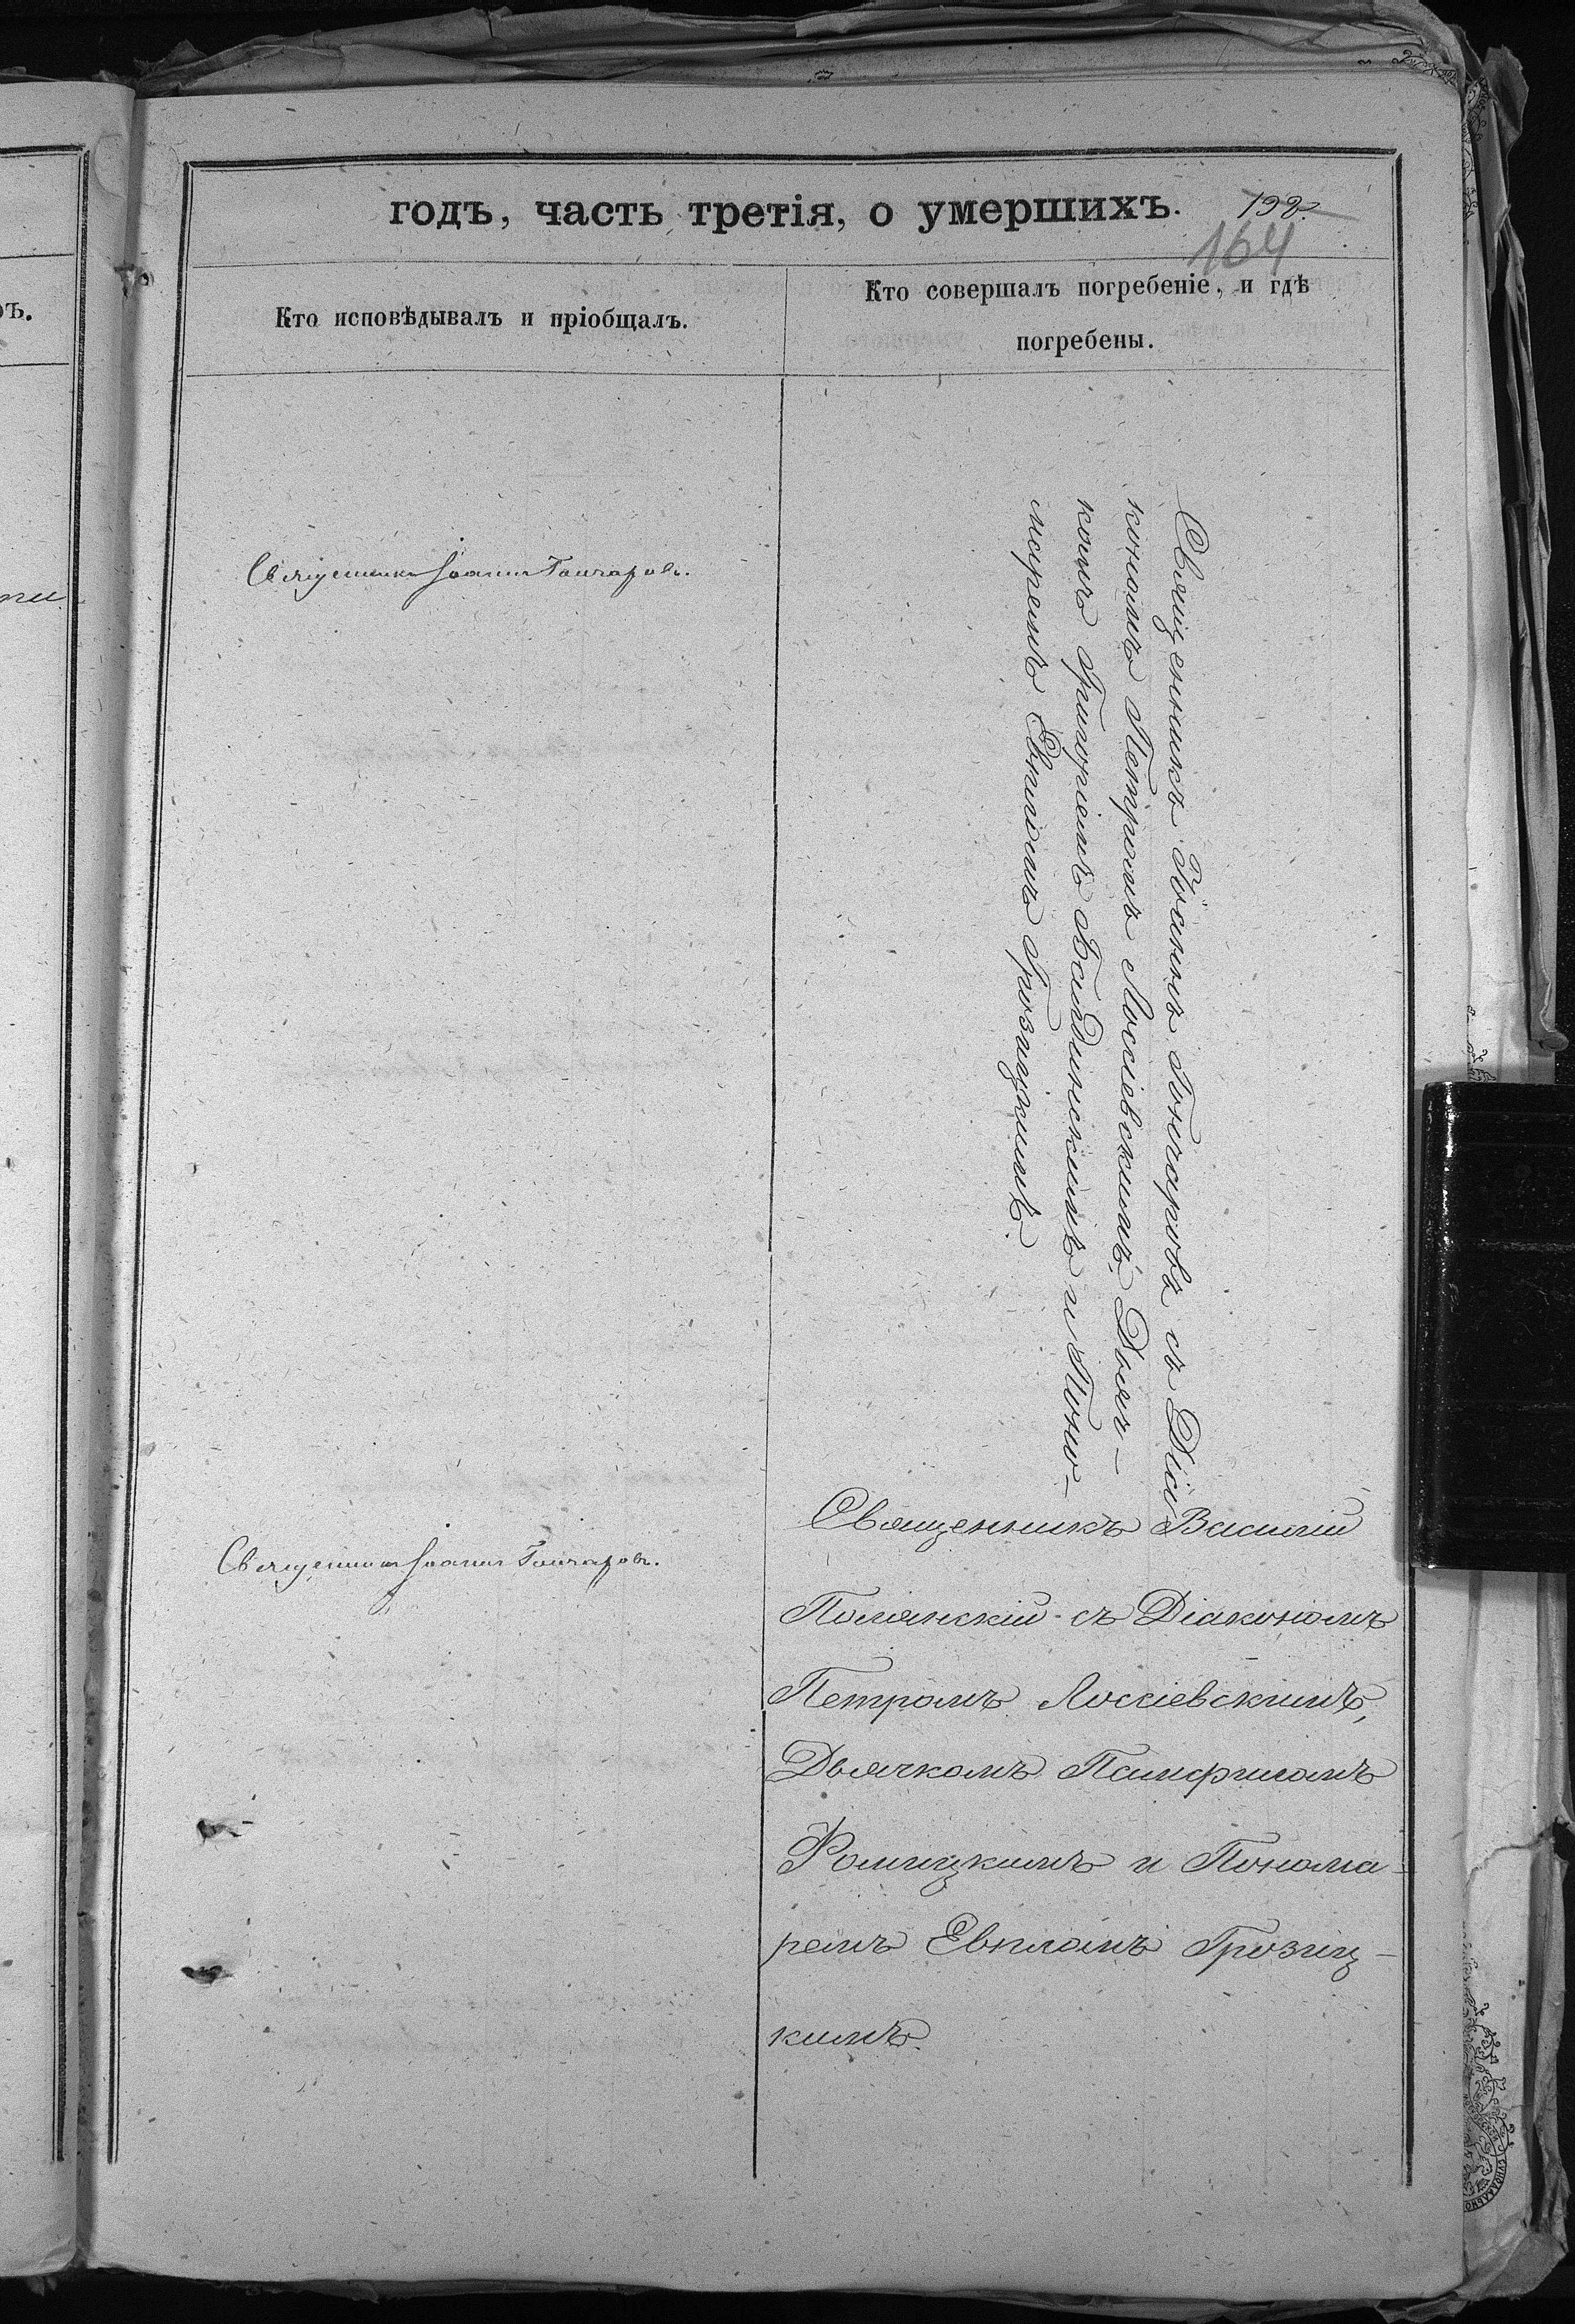 годъ, часть третія, о умершихъ.
192.
164
Кто исповѣдывалъ и пріобщалъ.
Кто совершалъ погребеніе, и гдѣ
погребены.
Священникъ Іоаннъ Гончаровъ.
Священникъ Іоаннъ Гончаровъ съ Діа
кономъ Петромъ Лоссіевскимъ, Дьяч-
комъ Григоріемъ и Поно-
маремъ Евпломъ Грозицкимъ.
Священникъ Іоаннъ Гончаровъ.
Священникъ Василій
Полянскій съ Діакономъ
Петромъ Лоссіевскимъ,
Дьячкомъ Памфиломъ
и Понома-
ремъ Евпломъ Грозиц-
кимъ.